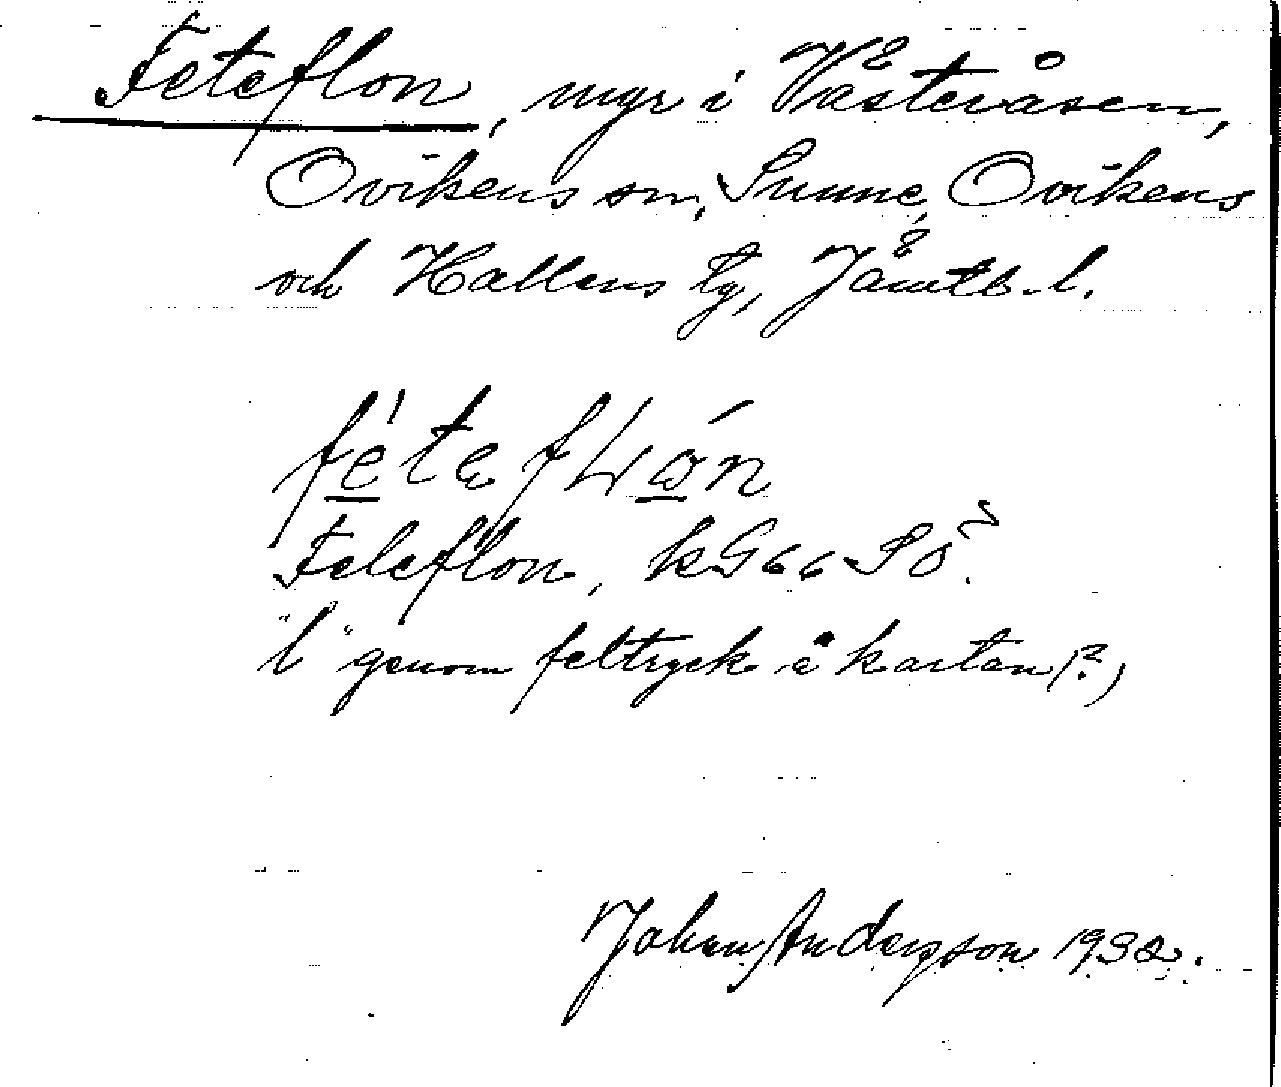 Feteflon, myr i Västeråsen,
Ovikens sn, Sunne, Ovikens
och Hallens tg, Jämtl. l.
fe̲te fLo̲n
Feleflon, kG 66 SÖ.
"l" genom feltryck å kartan (?)
Johan Andersson 1932.